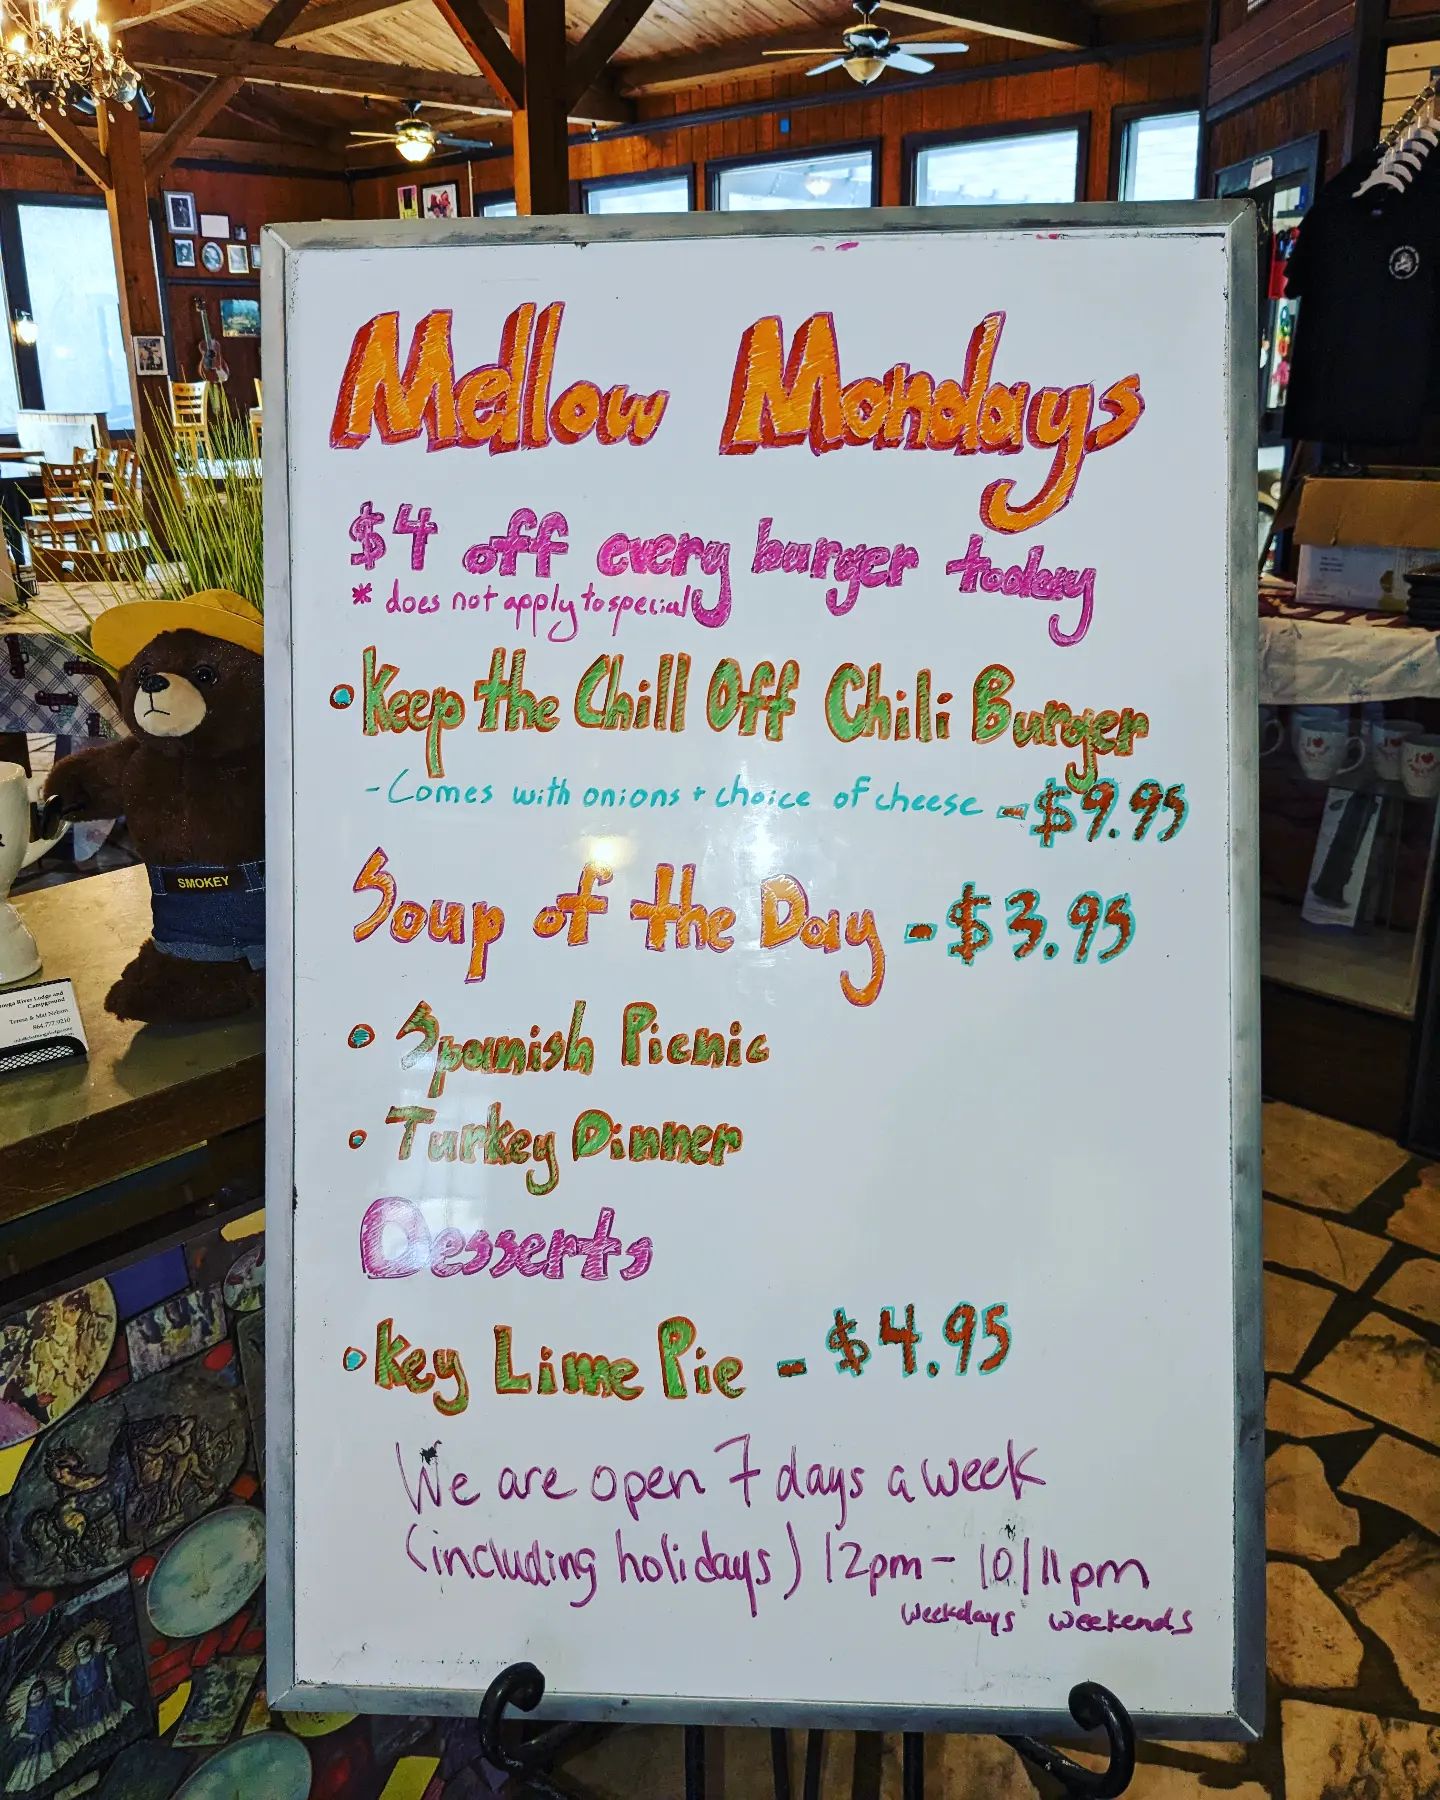 Mellow Mondays
$4 off every burger today
* does not apply to special
• Keep the Chill Off Chili Burger
- Comes with onions + choice of cheese - $9.95
Soup of the Day - $3.95
• Spanish Picnic
• Turkey Dinner
Desserts
• Key Lime Pie - $4.95
We are open 7 days a week
(including holidays) 12pm - 10/11pm
weekdays weekends
SMOKEY
River Lodge and
Campground
Teresa & Mat Nelson
864.777.9210